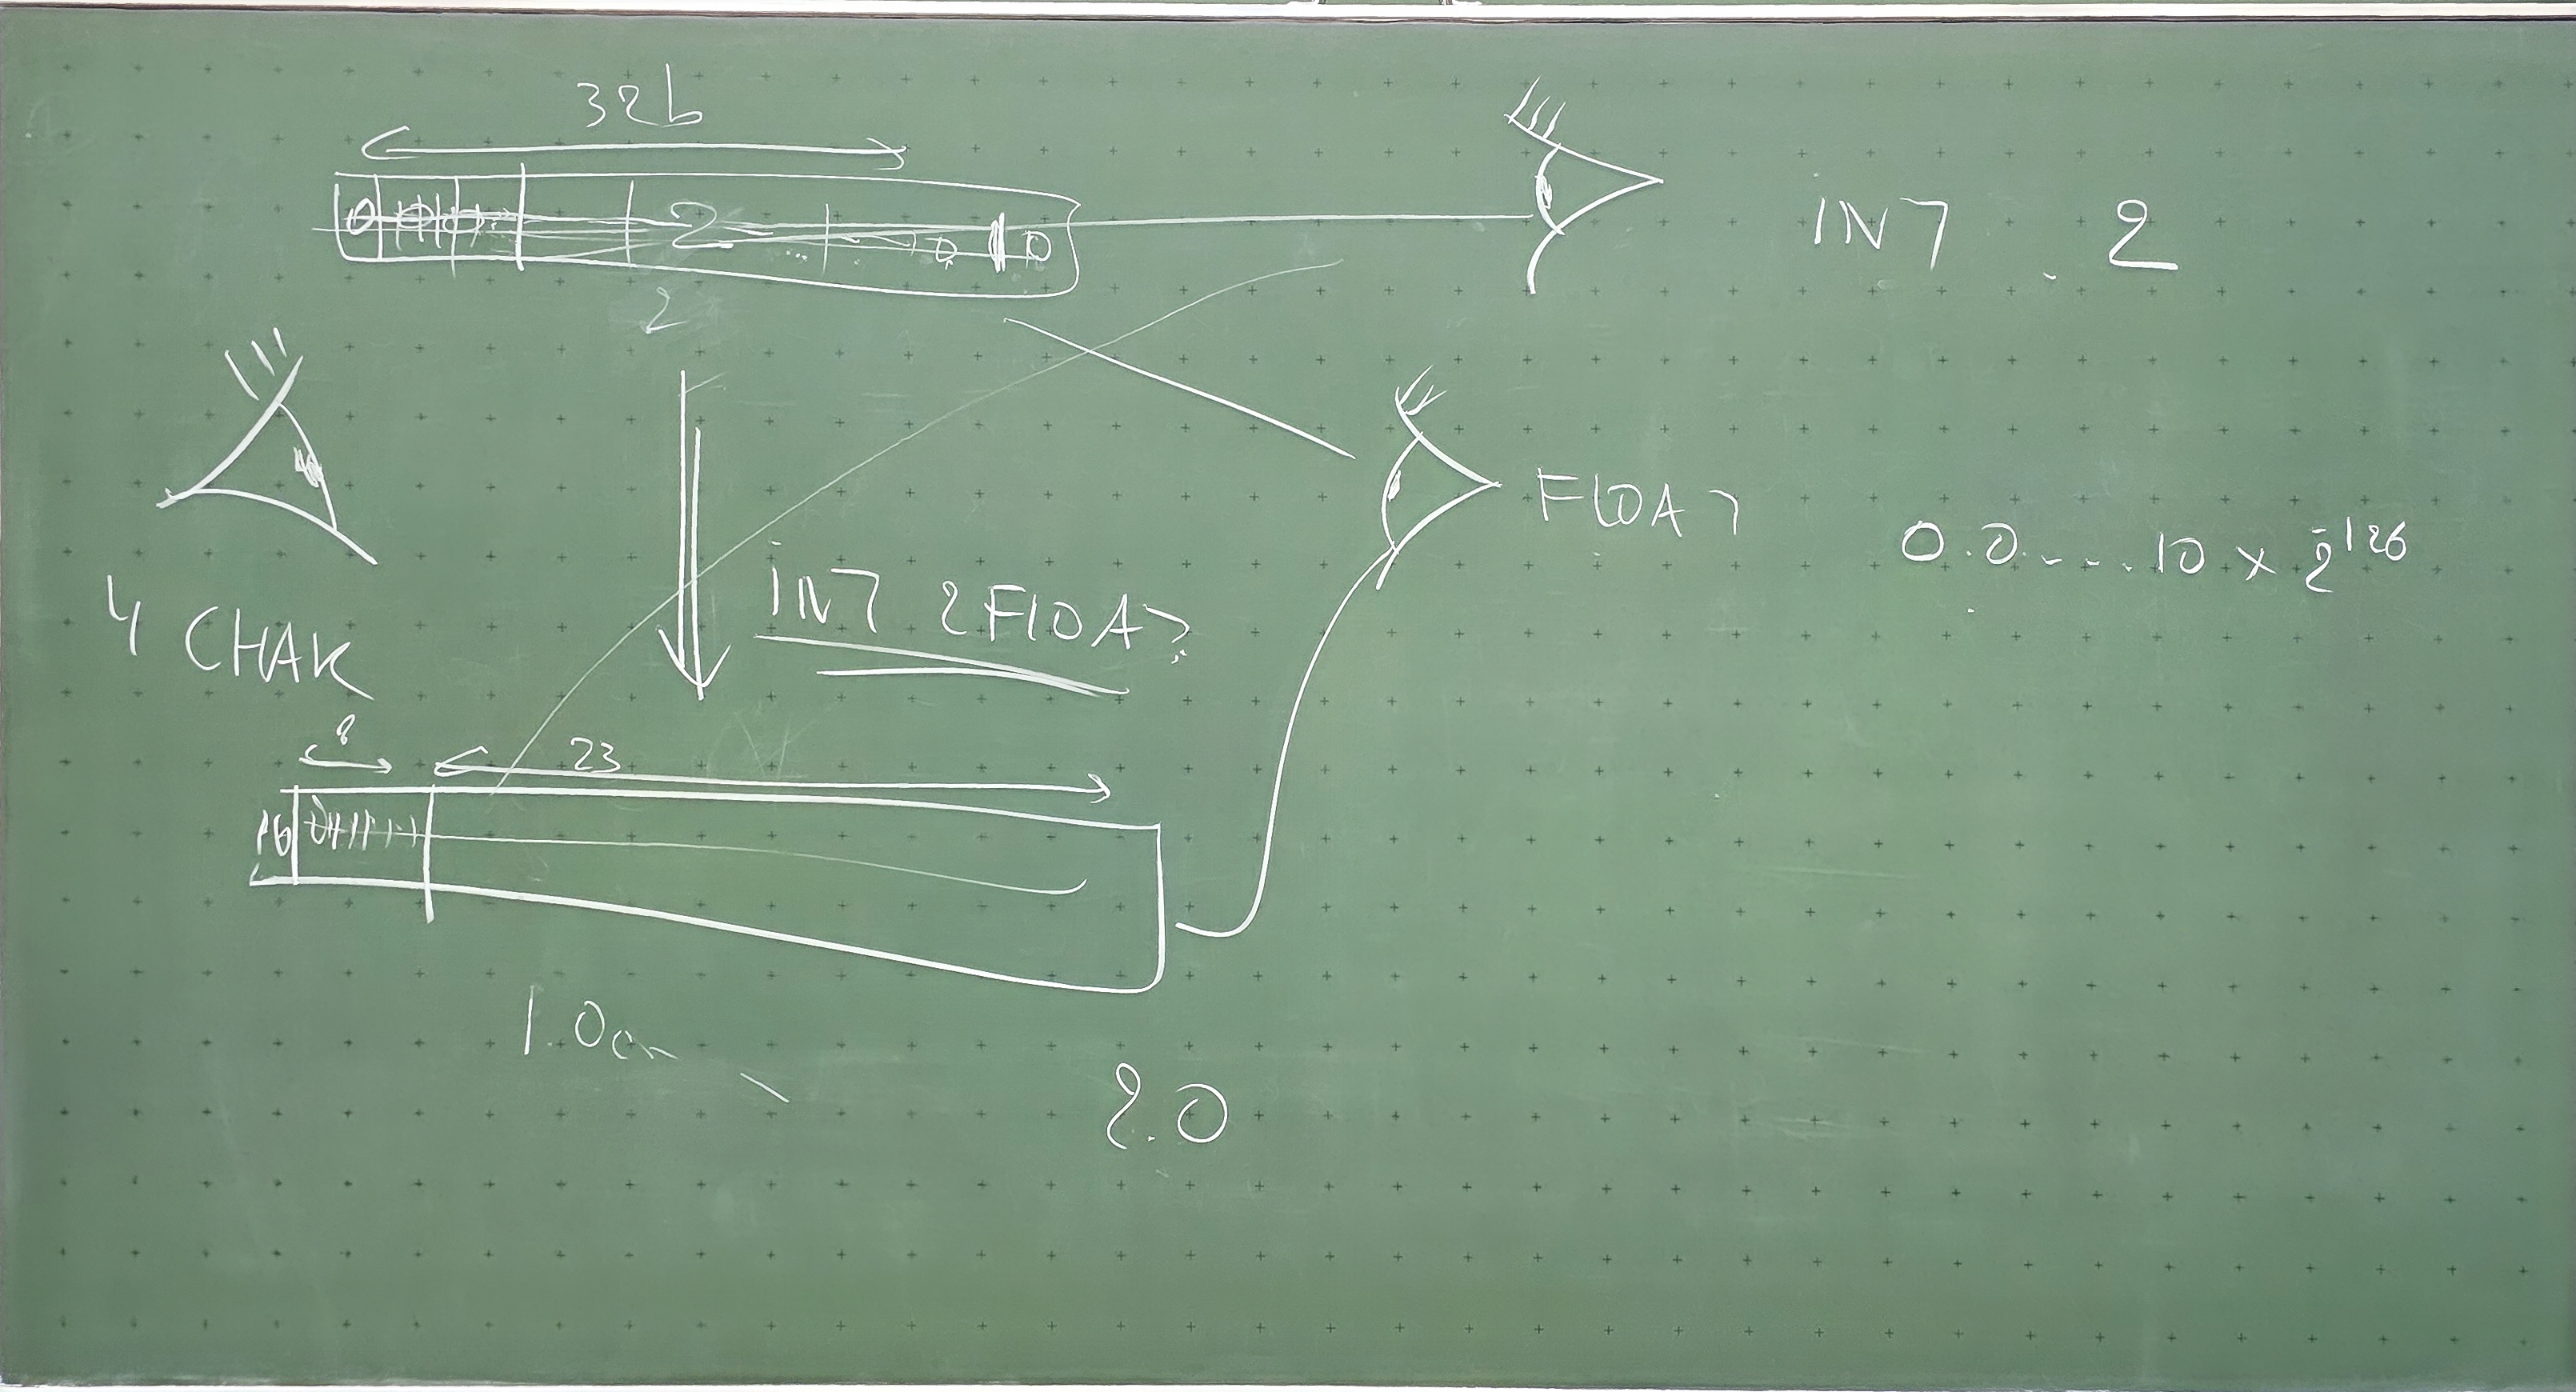 32b
0 0 0 2 ... 0 1 0
INT 2
2
FLOAT 0.0....10 x 2^-126
INT 2FLOAT
4 CHAR
8 23
1.00
2.0